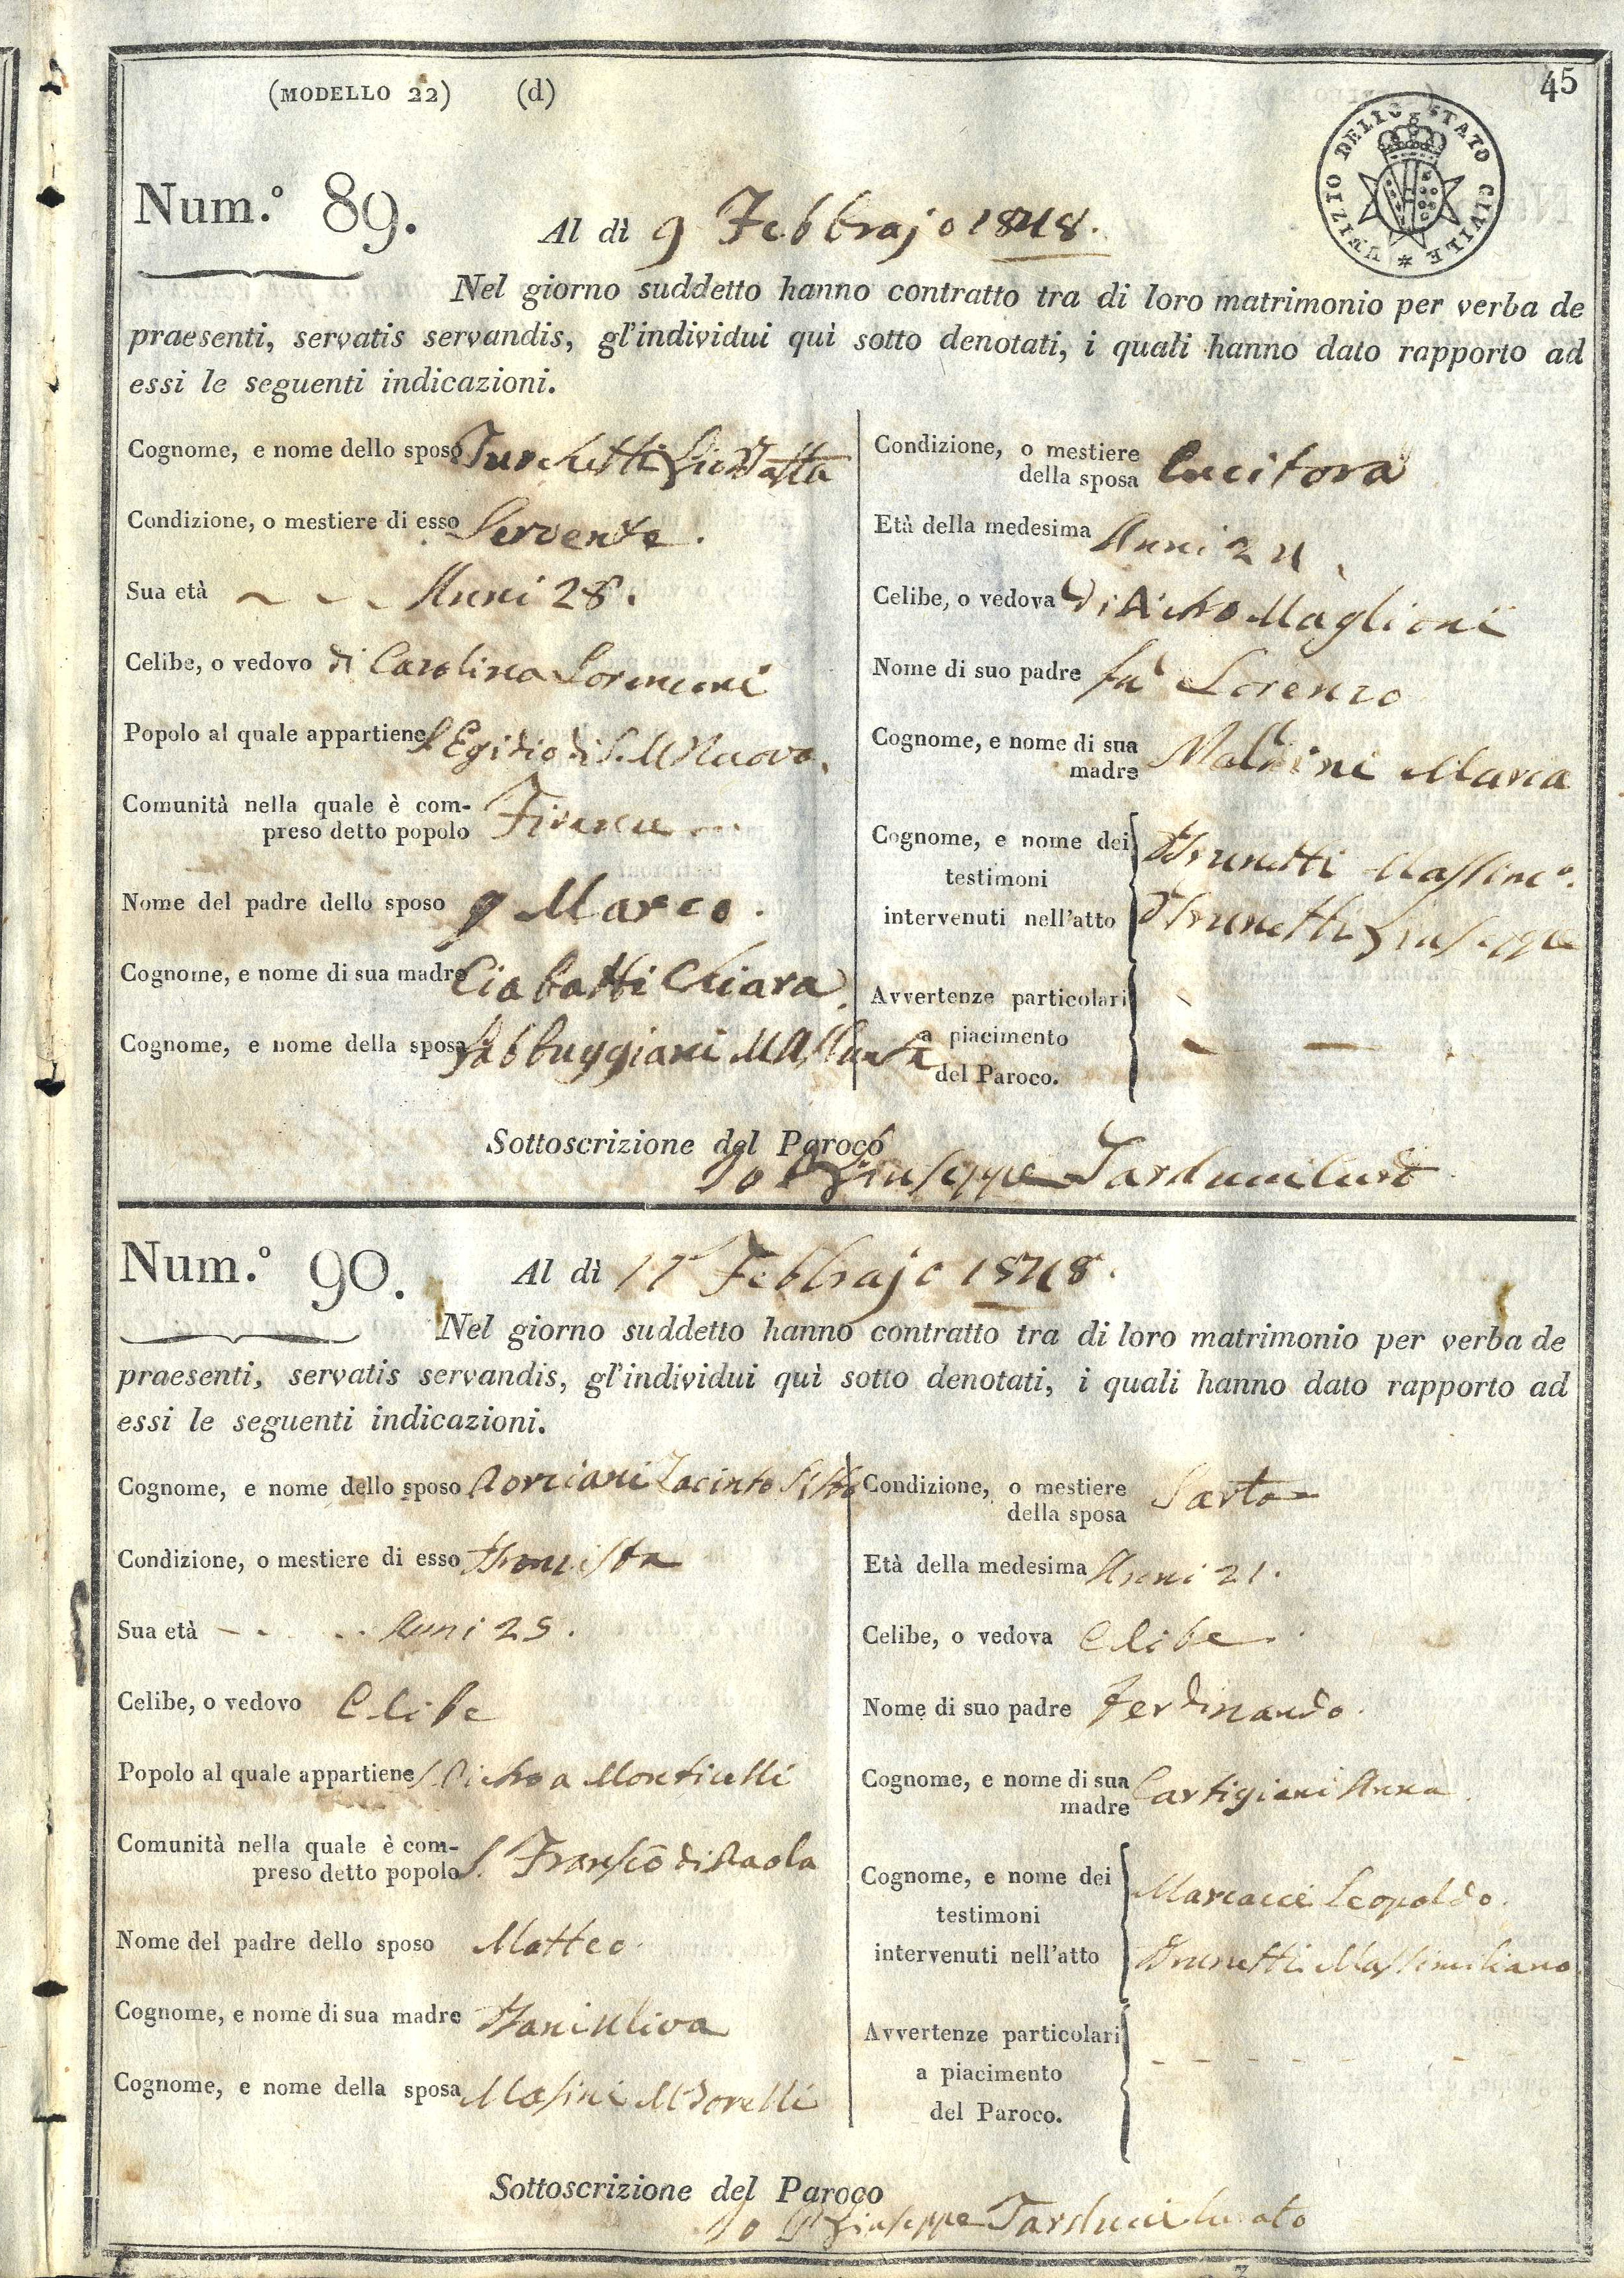 (MODELLO 22) (d)
45
UFIZIO DELLO STATO CIVILE *
Num.º 89.
Al dì 9 Febbrajo 1848.
Nel giorno suddetto hanno contratto tra di loro matrimonio per verba de
praesenti, servatis servandis, gl'individui quì sotto denotati, i quali hanno dato rapporto ad
essi le seguenti indicazioni.
Cognome, e nome dello sposo Turchetti Gio Batta
Condizione, o mestiere di esso Servente.
Sua età Anni 28.
Celibe, o vedovo di Carolina Lorenzoni
Popolo al quale appartiene S. Egidio di S. M Nuova.
Comunità nella quale è com-
preso detto popolo Firenze
Nome del padre dello sposo q Marco.
Cognome, e nome di sua madre Ciabatti Chiara
Cognome, e nome della sposa Sabbuggiani M Assunta
Condizione, o mestiere
della sposa Cucitora
Età della medesima Anni 24
Celibe, o vedova di Pietro Maglioni
Nome di suo padre fu Lorenzo
Cognome, e nome di sua
madre Maria
Cognome, e nome dei
testimoni
intervenuti nell'atto
Brunetti Massimo.
Brunetti Giuseppe
Avvertenze particolari
a piacimento
del Paroco.
Sottoscrizione del Paroco
Io P Giuseppe Tarducci Curo
Num.º 90.
Al dì 17 Febbrajo 1848.
Nel giorno suddetto hanno contratto tra di loro matrimonio per verba de
praesenti, servatis servandis, gl'individui quì sotto denotati, i quali hanno dato rapporto ad
essi le seguenti indicazioni.
Cognome, e nome dello sposo Zacinto
Condizione, o mestiere di esso
Sua età Anni 25.
Celibe, o vedovo Celibe
Popolo al quale appartiene S. Pietro a Monticelli
Comunità nella quale è com-
preso detto popolo S. Franscō di Paola
Nome del padre dello sposo Matteo
Cognome, e nome di sua madre
Cognome, e nome della sposa Masini M
Condizione, o mestiere
della sposa Sarta
Età della medesima Anni 21.
Celibe, o vedova Celibe
Nome di suo padre Ferdinando.
Cognome, e nome di sua
madre Cartigiani Anna
Cognome, e nome dei
testimoni
intervenuti nell'atto
Marcacci Leopoldo.
Brunetti Massimiliano
Avvertenze particolari
a piacimento
del Paroco.
Sottoscrizione del Paroco
Io P Giuseppe Tarducci Curato